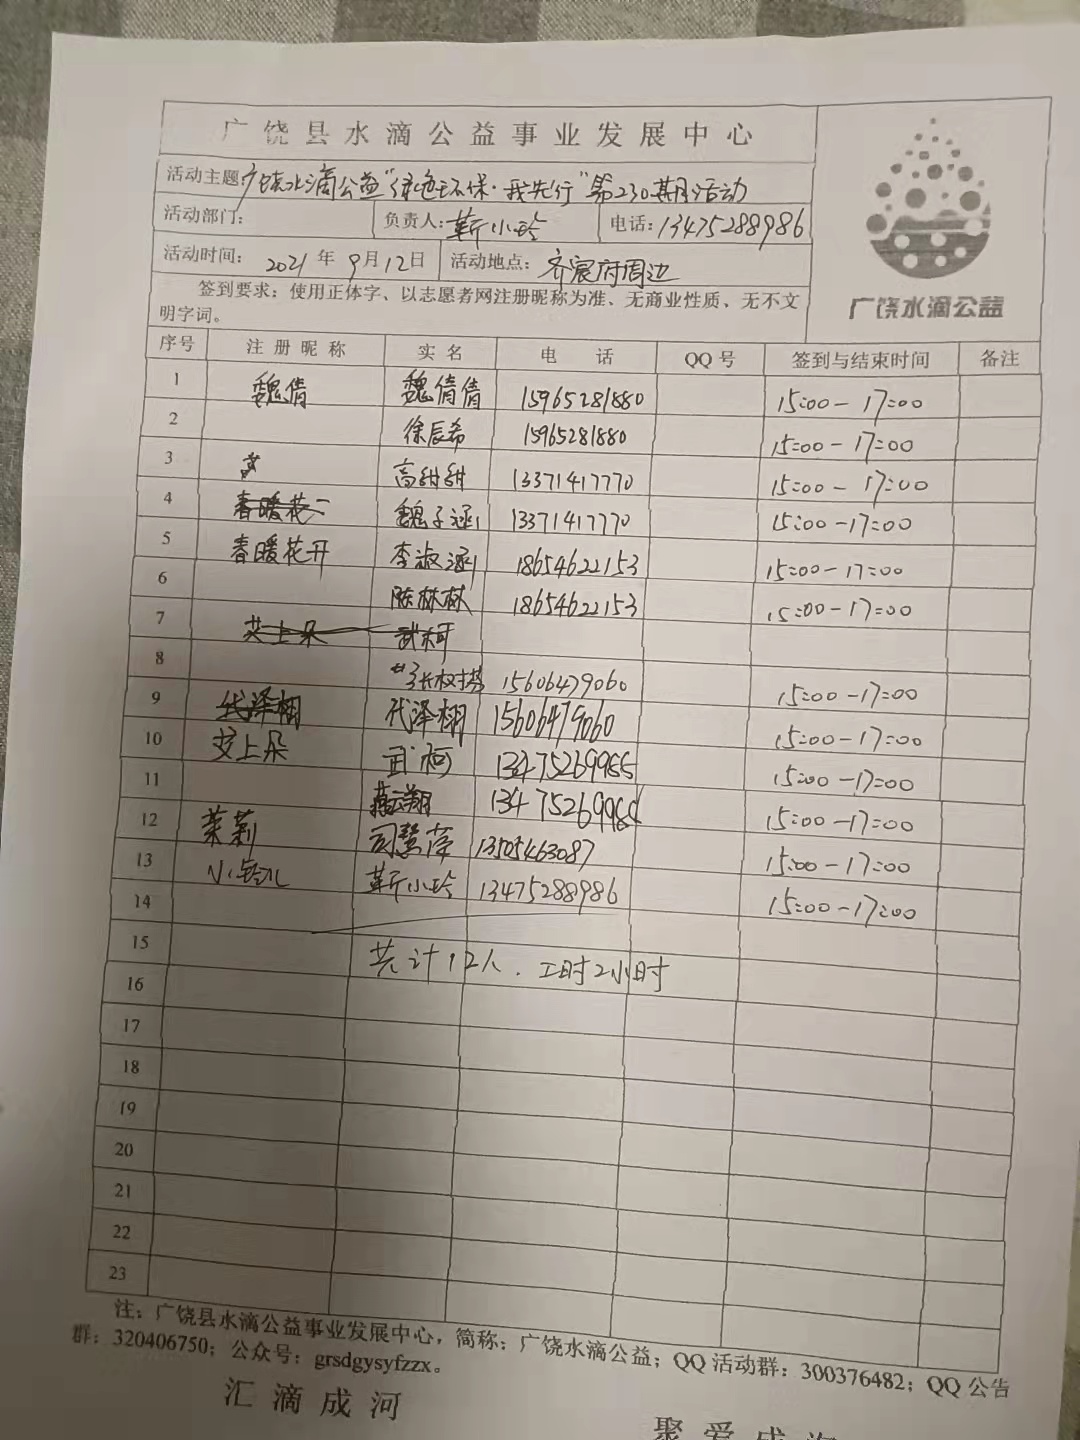 广饶县水滴公益事业发展中心
活动主题：广饶水滴公益“绿色环保·我先行”第230期活动
活动部门： 负责人：靳小玲 电话：13475288986
活动时间： 2021年9月12日 活动地点：齐宸府周边
签到要求：使用正体字、以志愿者网注册昵称为准、无商业性质、无不文
明字词。
广饶水滴公益
序号 注册昵称 实名 电话 QQ号 签到与结束时间 备注
1 魏倩 魏倩倩 15965281880 15:00-17:00
2 徐辰希 15965281880 15:00-17:00
3 高甜甜 13371417770 15:00-17:00
4 春暖花 魏子涵 13371417770 15:00-17:00
5 春暖花开 李淑涵 18654622153 15:00-17:00
6 陈林林 18654622153 15:00-17:00
7 艾上朵 武柯
8 张权 15606479060 15:00-17:00
9 代泽栩 代泽栩 15606479060 15:00-17:00
10 艾上朵 武柯 13475269986 15:00-17:00
11 翔 13475269986 15:00-17:00
12 茉莉 司慧莹 13505463087 15:00-17:00
13 小铃儿 靳小玲 13475288986 15:00-17:00
14
15 共计12人．工时2小时
16
17
18
19
20
21
22
23
注：广饶县水滴公益事业发展中心，简称：广饶水滴公益；QQ活动群：300376482；QQ公告
群：320406750；公众号：grsdgysyfzzx。
汇滴成河
聚爱成海